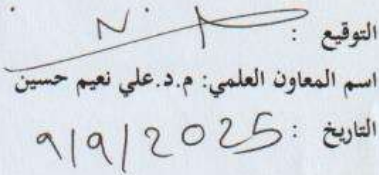 التوقيع :
اسم المعاون العلمي: م.د.علي نعيم حسين
التاريخ : 9/9/2025